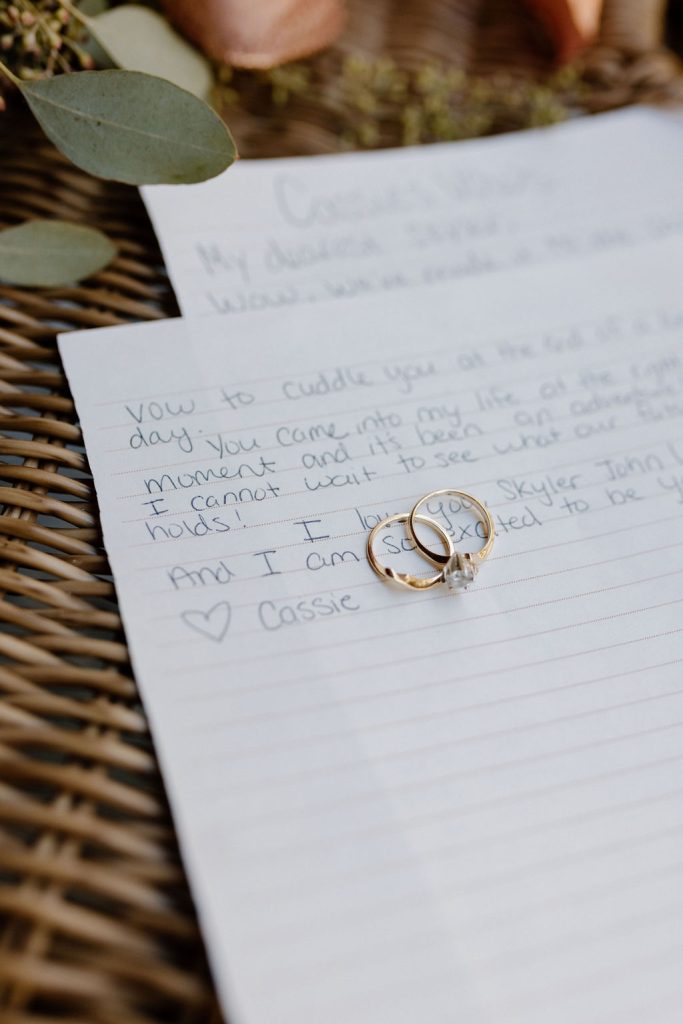 Cassie's Vows
My dearest Skyler,
Wow, we've made it
vow to cuddle you at the end of a
day. You came into my life at the right
moment and it's been an
I cannot wait to see what our
holds! I love you, Skyler John
And I am so excited to be
♡ Cassie